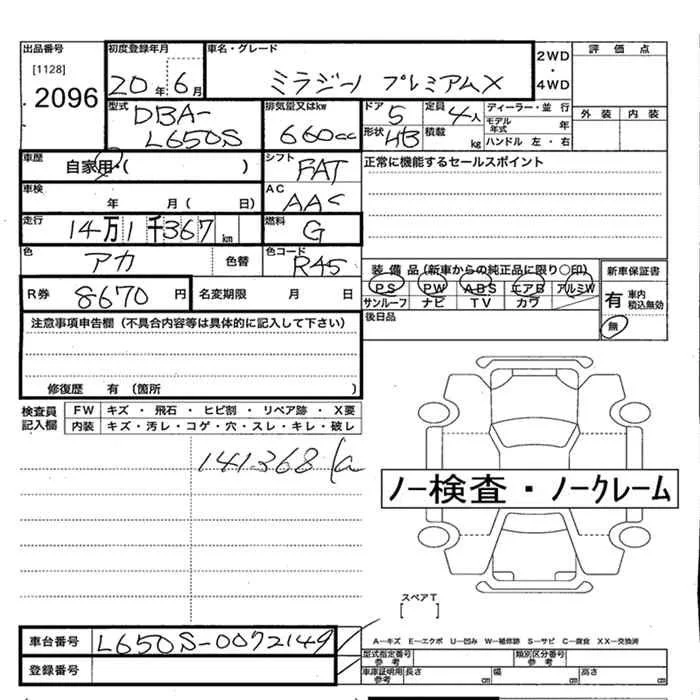 出品番号 初度登録年月 車名・グレード 2WD・4WD 評価点
[1128]
2096 20年 6月 ミラジーノ プレミアムX
型式 排気量又はkw ドア 定員 ディーラー・並行 外装 内装
DBA-L650S 660cc 5 4人 モデル年式 年
形状 HB 積載 kg ハンドル 左・右
車歴 自家用・( ) シフト FAT 正常に機能するセールスポイント
車検 年 月( 日) AC AAC
走行 14万1千367km 燃料 G
色 アカ 色替 色コード R45
装備品(新車からの純正品に限り○印) 新車保証書
PS PW ABS エアB アルミW 有 車内積込無効
サンルーフ ナビ TV カワ 無
R券 8670円 名変期限 月 日 後日品
注意事項申告欄(不具合内容等は具体的に記入して下さい)
修復歴 有(箇所 )
検査員記入欄 FW キズ・飛石・ヒビ割・リペア跡・X要
内装 キズ・汚レ・コゲ・穴・スレ・キレ・破レ
141368
ノー検査・ノークレーム
スペアT
[ ]
A−キズ E−エクボ U−凹み W−補修跡 S−サビ C−腐食 XX−交換済
車台番号 L650S-0072149 型式指定番号 参考 類別区分番号 参考
登録番号 車庫証明用参考 長さ cm 幅 cm 高さ cm